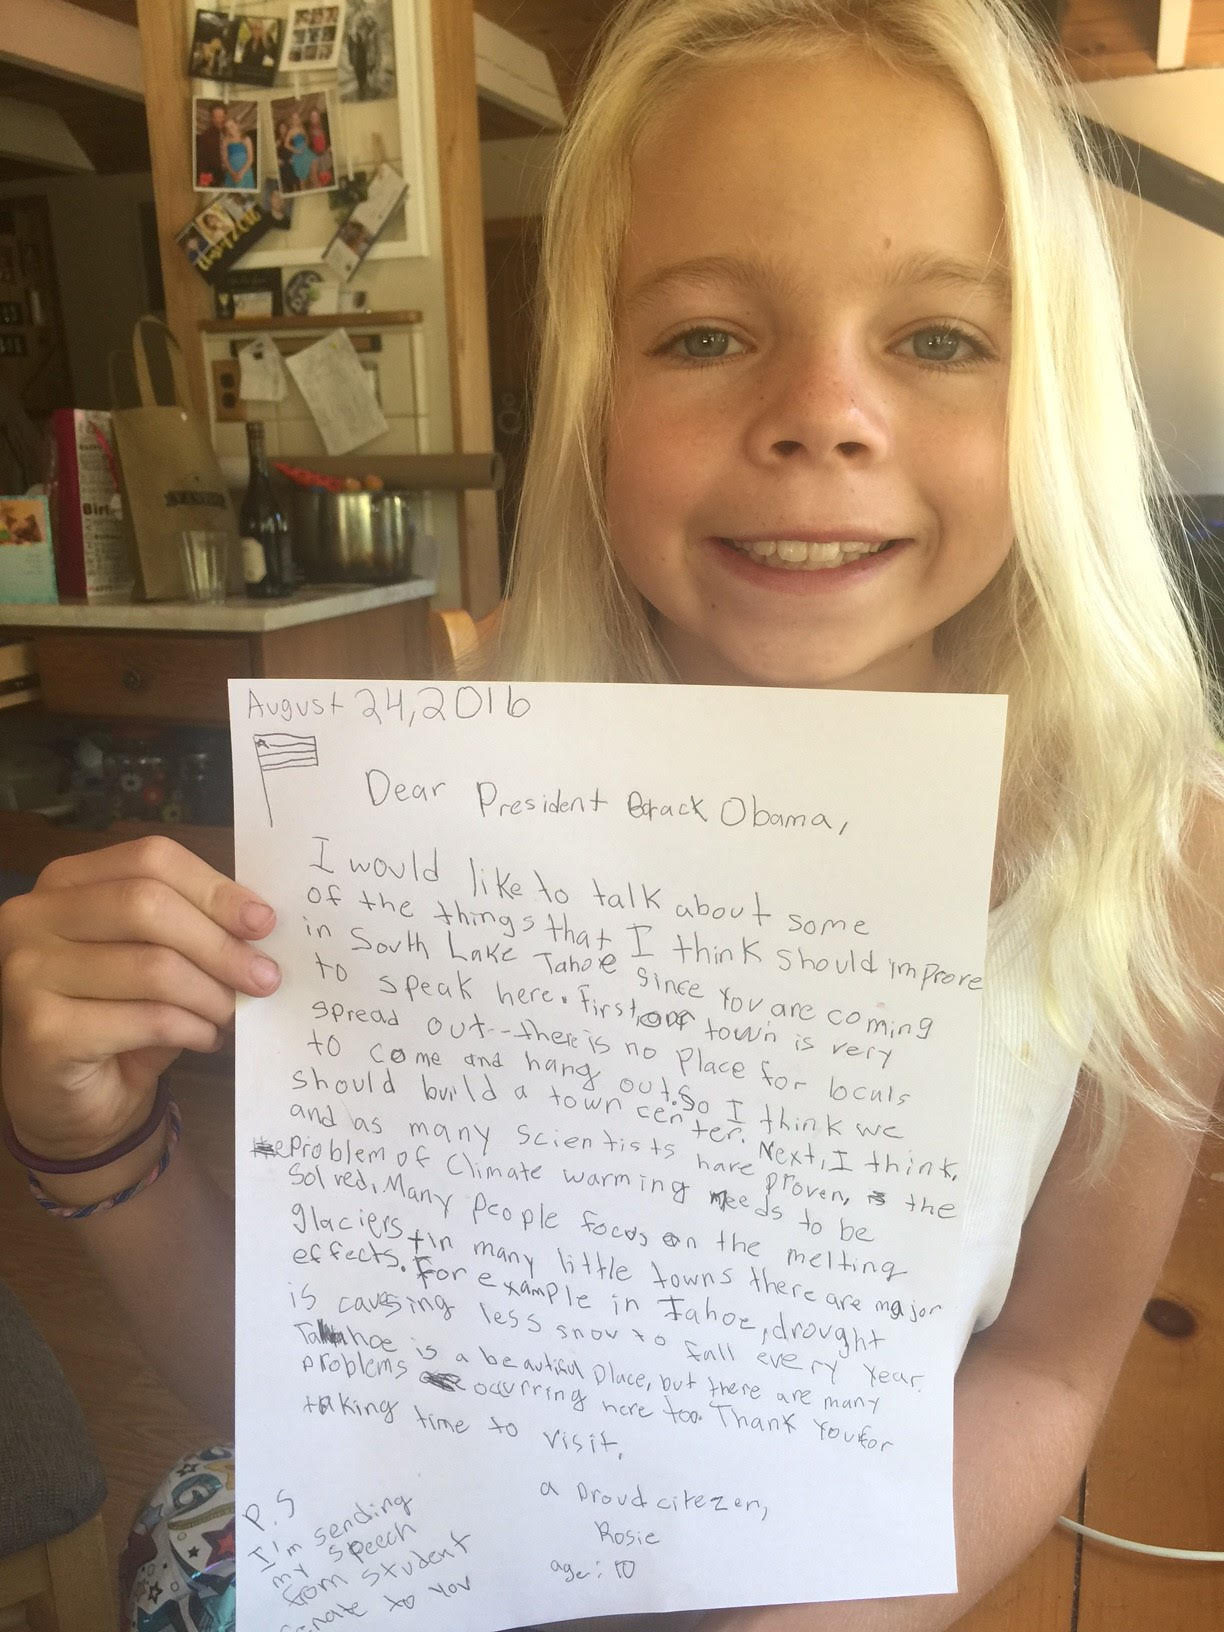 August 24, 2016
Dear President Barack Obama,
I would like to talk about some
of the things that I think should improve
in South Lake Tahoe since you are coming
to speak here. First, our town is very
spread out--there is no place for locals
to come and hang out. So I think we
should build a town center. Next, I think,
and as many scientists have proven, the
problem of Climate warming needs to be
Solved. Many people focus on the melting
glaciers, in many little towns there are major
effects. For example in Tahoe, drought
is causing less snow to fall every year.
Tahoe is a beautiful place, but there are many
problems ocurring here too. Thank you for
taking time to visit.
a proud citezen,
Rosie
age: 10
P.S
I'm sending
my speech
from student
senate to you